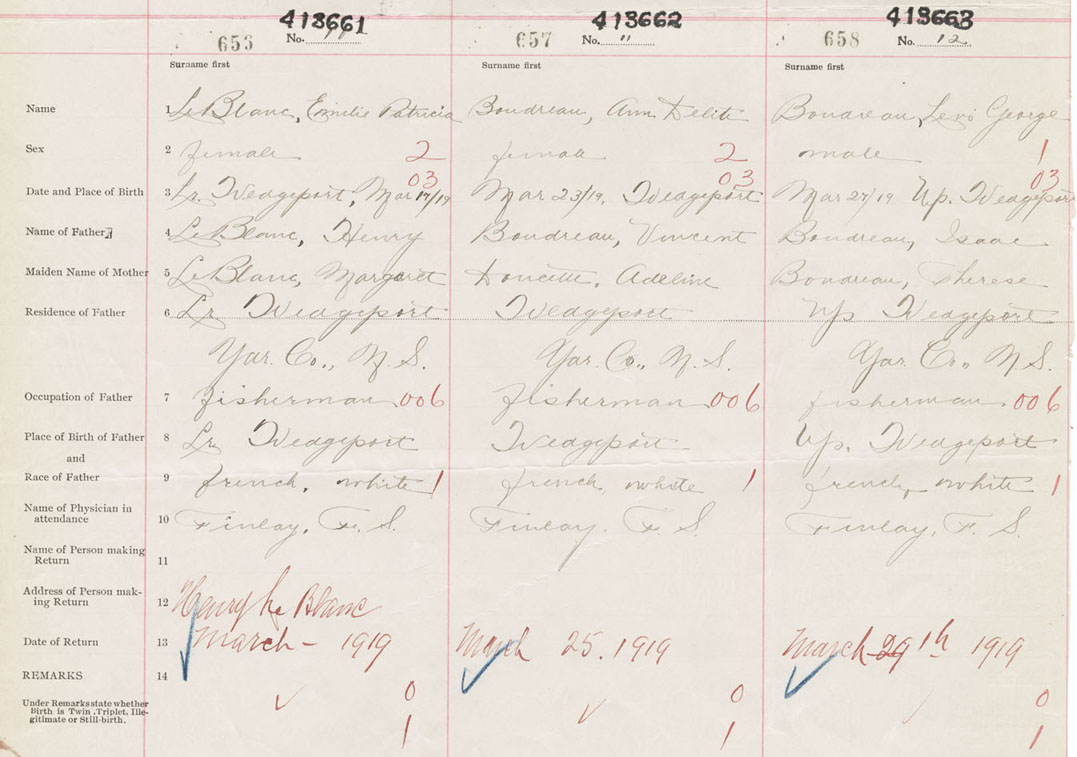 413661 413662 413663
656 No. 11 657 No. " 658 No. 12
Surname first Surname first Surname first
Name 1 LeBlanc, Emilie Patricia Boudreau, Ann Delite Boudreau, Levi George
Sex 2 female 2 female 2 male 1
03 03 03
Date and Place of Birth 3 Lr. Wedgeport, Mar 17/19 Mar 23/19, Wedgeport Mar 27/19 Up. Wedgeport
Name of Father 4 LeBlanc, Henry Boudreau, Vincent Boudreau, Isaac
Maiden Name of Mother 5 LeBlanc, Margaret Doucette, Adeline Boudreau, Therese
Residence of Father 6 Lr Wedgeport Wedgeport Up Wedgeport
Yar. Co., N.S. Yar. Co., N.S. Yar. Co., N.S.
Occupation of Father 7 fisherman 006 fisherman 006 fisherman 006
Place of Birth of Father 8 Lr. Wedgeport Wedgeport Up. Wedgeport
and
Race of Father 9 french, white 1 french, white 1 french, white 1
Name of Physician in
attendance 10 Finlay, F. S. Finlay, F. S. Finlay, F. S.
Name of Person making
Return 11
Address of Person mak-
ing Return 12 Henry Le Blanc
Date of Return 13 March - 1919 March 25. 1919 March 29th 1919
REMARKS 14
0 0 0
Under Remarks state whether
Birth is Twin, Triplet, Ille-
gitimate or Still-birth.
1 1 1